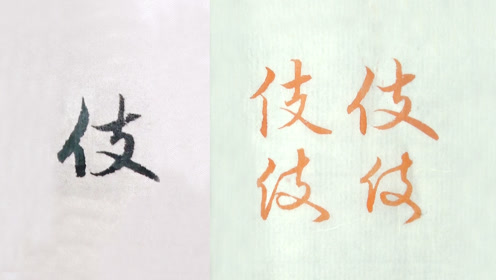 伎
伎伎
伎伎